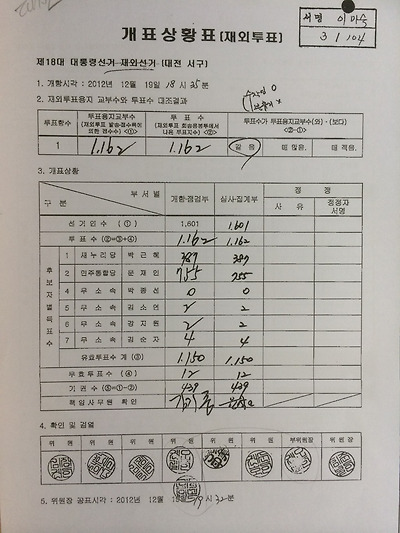 서명 이마숙
3 1 104
개표상황표(재외투표)
제18대 대통령선거 재외선거 (대전 서구)
1. 개함시각 : 2012년 12월 19일 18시 25분
2. 재외투표용지 교부수와 투표수 대조결과
투표함수 투표용지교부수 투표수 투표수가 투표용지교부수(와)·(보다)
<②-①>
1 1.162 1.162 같음 매 많음. 매 적음.
3. 개표상황
구분 부서별 개함·점검부 심사·집계부 정정
사유 정정자 서명
선거인수 (①) 1,601 1.601
투표수 (②=③+④) 1.162 1.162
후보자별득표수
1 새누리당 박근혜 389 389
2 민주통합당 문재인 755 755
4 무소속 박종선 0 0
5 무소속 김소연 2 2
6 무소속 강지원 2 2
7 무소속 김순자 4 4
유효투표수 계 (③) 1.150 1.150
무효투표수 (④) 12 12
기권수 (⑤=①-②) 439 439
책임사무원 확인
4. 확인 및 검열
위원 위원 위원 위원 위원 위원 부위원장 위원장
5. 위원장 공표시각 : 2012년 12월 19일 19시 32분